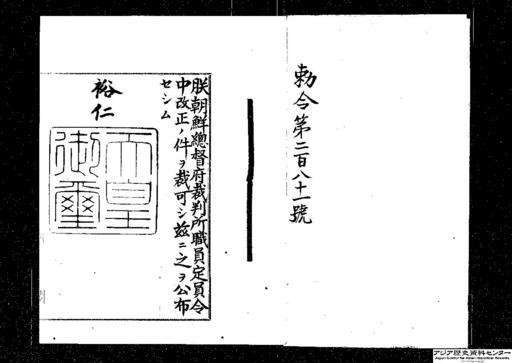 勅令第二百八十一號
朕朝鮮總督府裁判所職員定員令
中改正ノ件ヲ裁可シ茲ニ之ヲ公布
セシム
裕仁
天皇
御璽
アジア歴史資料センター
Japan Center for Asian Historical Records